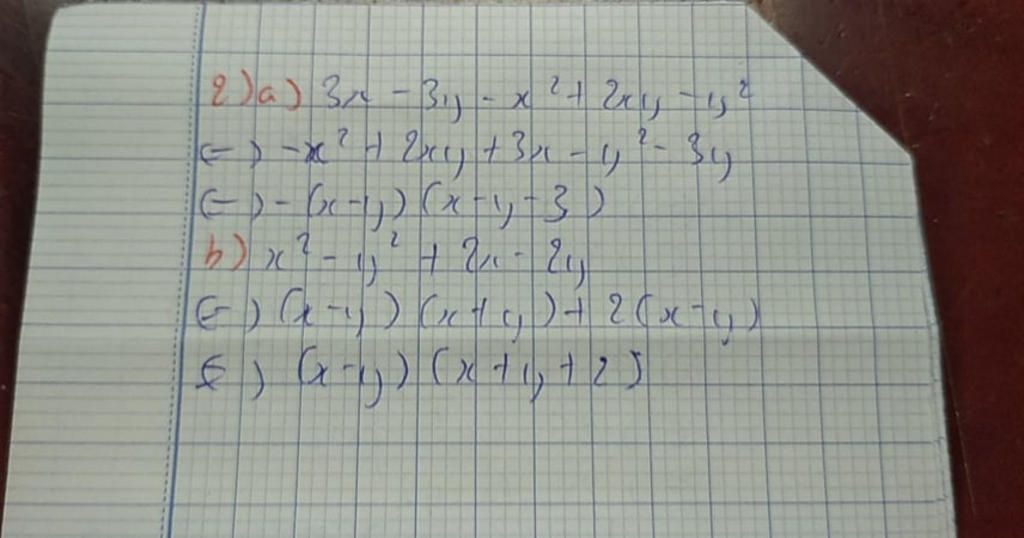 2) a) 3x - 3y - x² + 2xy - y²
(=) -x² + 2xy + 3x - y² - 3y
(=) - (x-y) (x-y-3)
b) x² - y² + 2x - 2y
(=) (x-y) (x+y) + 2(x-y)
(=) (x-y) (x+y+2)